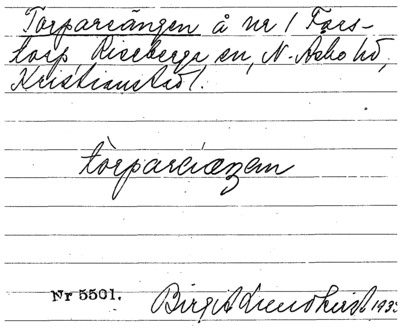 Torparängen å nr 1 Fors-
torp Riseberga sn, N. Åsbo hd,
Kristianstad l.
torparæŋen
Nr 5501.
Birgit Lundkvist 193